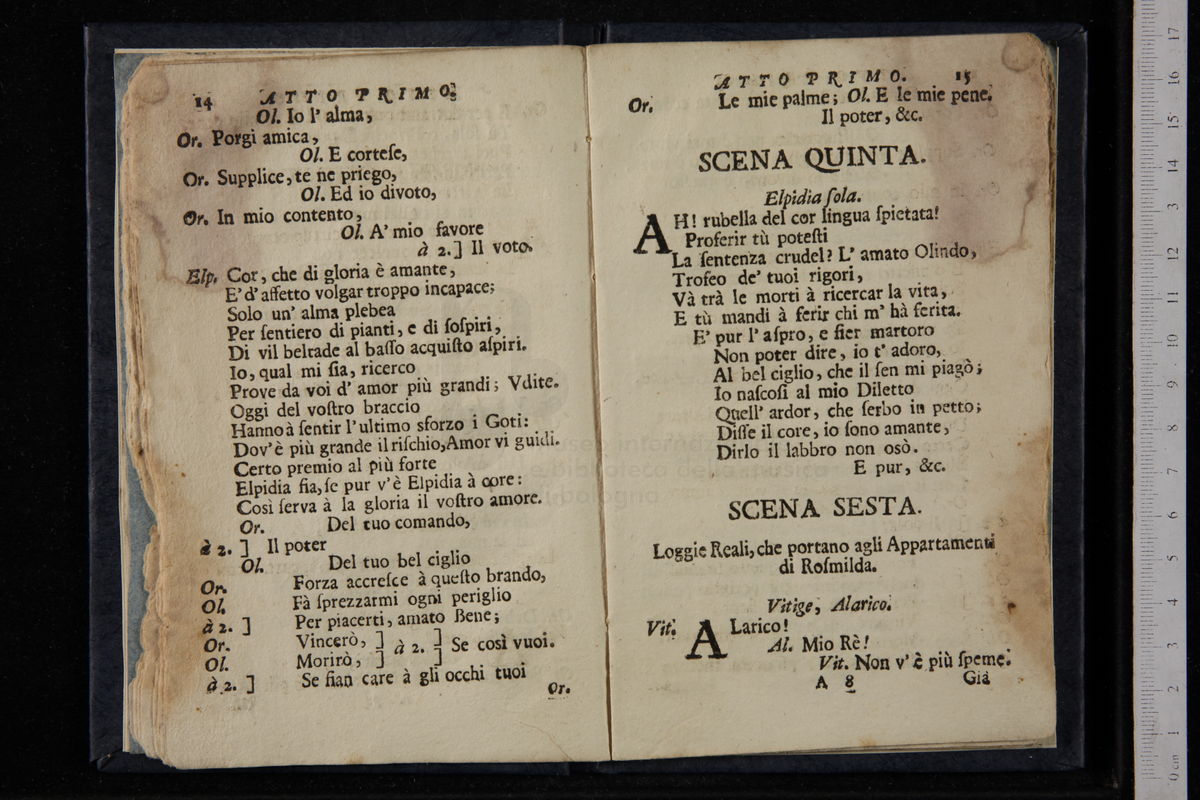 14 ATTO PRIMO.
Ol. Io l' alma,
Or. Porgi amica,
Ol. E corteſe,
Or. Supplice, te ne priego,
Ol. Ed io divoto,
Or. In mio contento,
Ol. A' mio favore
à 2. ] Il voto.
Elp. Cor, che di gloria è amante,
E' d' affetto volgar troppo incapace;
Solo un' alma plebea
Per ſentiero di pianti, e di ſoſpiri,
Di vil beltade al baſſo acquiſto aſpiri.
Io, qual mi ſia, ricerco
Prove da voi d' amor più grandi; Vdite.
Oggi del voſtro braccio
Hanno à ſentir l'ultimo sforzo i Goti:
Dov'è più grande il riſchio, Amor vi guidi.
Certo premio al più forte
Elpidia ſia, ſe pur v'è Elpidia à core:
Così ſerva à la gloria il voſtro amore.
Or. Del tuo comando,
à 2. ] Il poter
Ol. Del tuo bel ciglio
Or. Forza accreſce à queſto brando,
Ol. Fà ſprezzarmi ogni periglio
à 2. ] Per piacerti, amato Bene;
Or. Vincerò, ] à 2. ] Se così vuoi.
Ol. Morirò, ] ]
à 2. ] Se ſian care à gli occhi tuoi
Or.
ATTO PRIMO. 15
Or. Le mie palme; Ol. E le mie pene.
Il poter, &c.
SCENA QUINTA.
Elpidia ſola.
AH! rubella del cor lingua ſpietata!
Proferir tù poteſti
La ſentenza crudel? L' amato Olindo,
Trofeo de' tuoi rigori,
Và trà le morti à ricercar la vita,
E tù mandi à ferir chi m' hà ferita.
E' pur l' aſpro, e fier martoro
Non poter dire, io t' adoro,
Al bel ciglio, che il ſen mi piagò;
Io naſcoſi al mio Diletto
Quell' ardor, che ſerbo in petto;
Diſſe il core, io ſono amante,
Dirlo il labbro non osò.
E pur, &c.
SCENA SESTA.
Loggie Reali, che portano agli Appartamenti
di Roſmilda.
Vitige, Alarico.
Vit. ALarico!
Al. Mio Rè!
Vit. Non v' è più ſpeme.
A 8 Già
museo internazionale
e biblioteca della musica
di bologna
0 cm 1 2 3 4 5 6 7 8 9 10 11 12 13 14 15 16 17